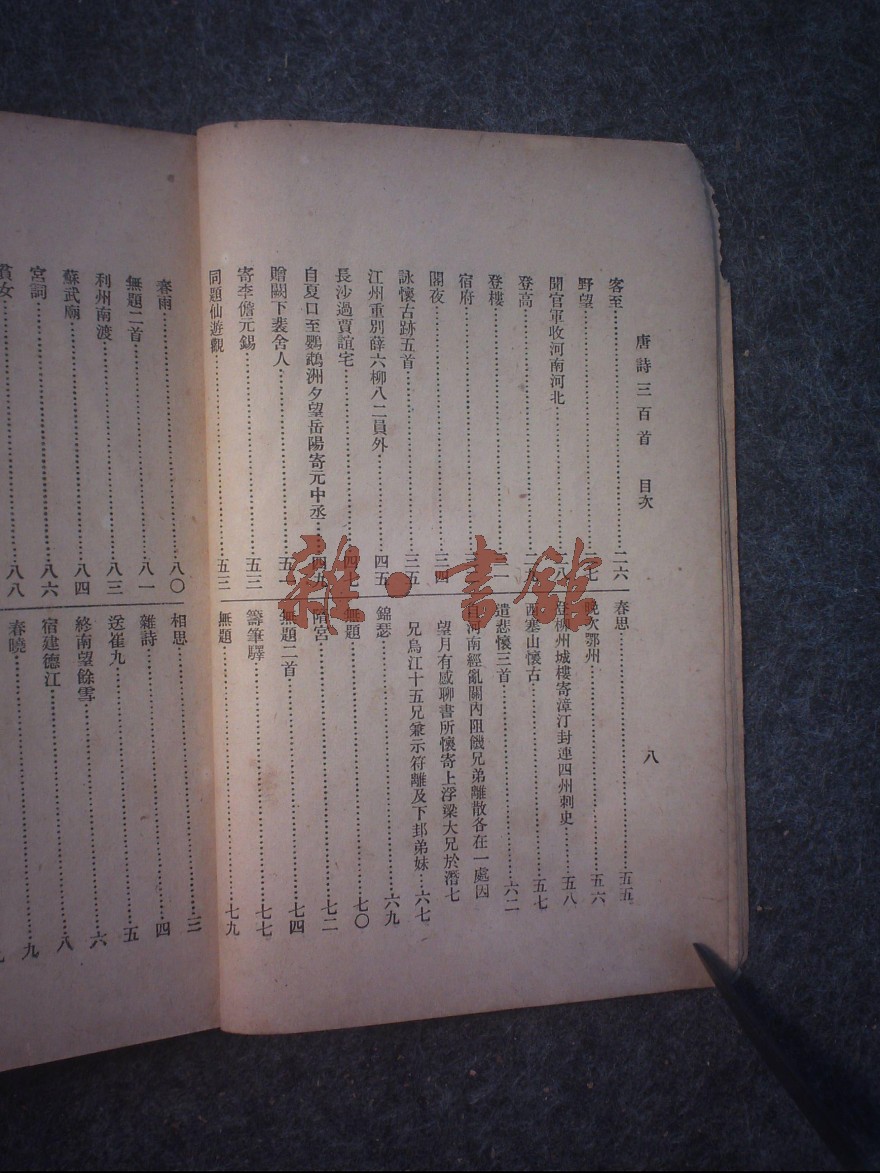 唐詩三百首　目次
八
客至……二六
野望……二七
聞官軍收河南河北……二八
登高……二九
登樓
宿府……三
閣夜……三四
詠懷古跡五首……三五
江州重別薛六柳八二員外……四五
長沙過賈誼宅……四
自夏口至鸚鵡洲夕望岳陽寄元中丞……四九
贈闕下裴舍人……五一
寄李儋元錫……五三
同題仙遊觀……五三
春思……五五
晚次鄂州……五六
登柳州城樓寄漳汀封連四州刺史……五八
西塞山懷古……五七
遣悲懷三首……六二
河南經亂關內阻饑兄弟離散各在一處因
望月有感聊書所懷寄上浮梁大兄於潛七
兄烏江十五兄兼示符離及下邽弟妹……六七
錦瑟……六九
無題……七〇
隋宮……七二
無題二首……七四
籌筆驛……七七
無題……七九
春雨……八〇
無題二首……八一
利州南渡……八三
蘇武廟……八四
宮詞……八六
貧女……八八
相思……三
雜詩……四
送崔九……五
終南望餘雪……六
宿建德江……八
春曉……九
雜·書館